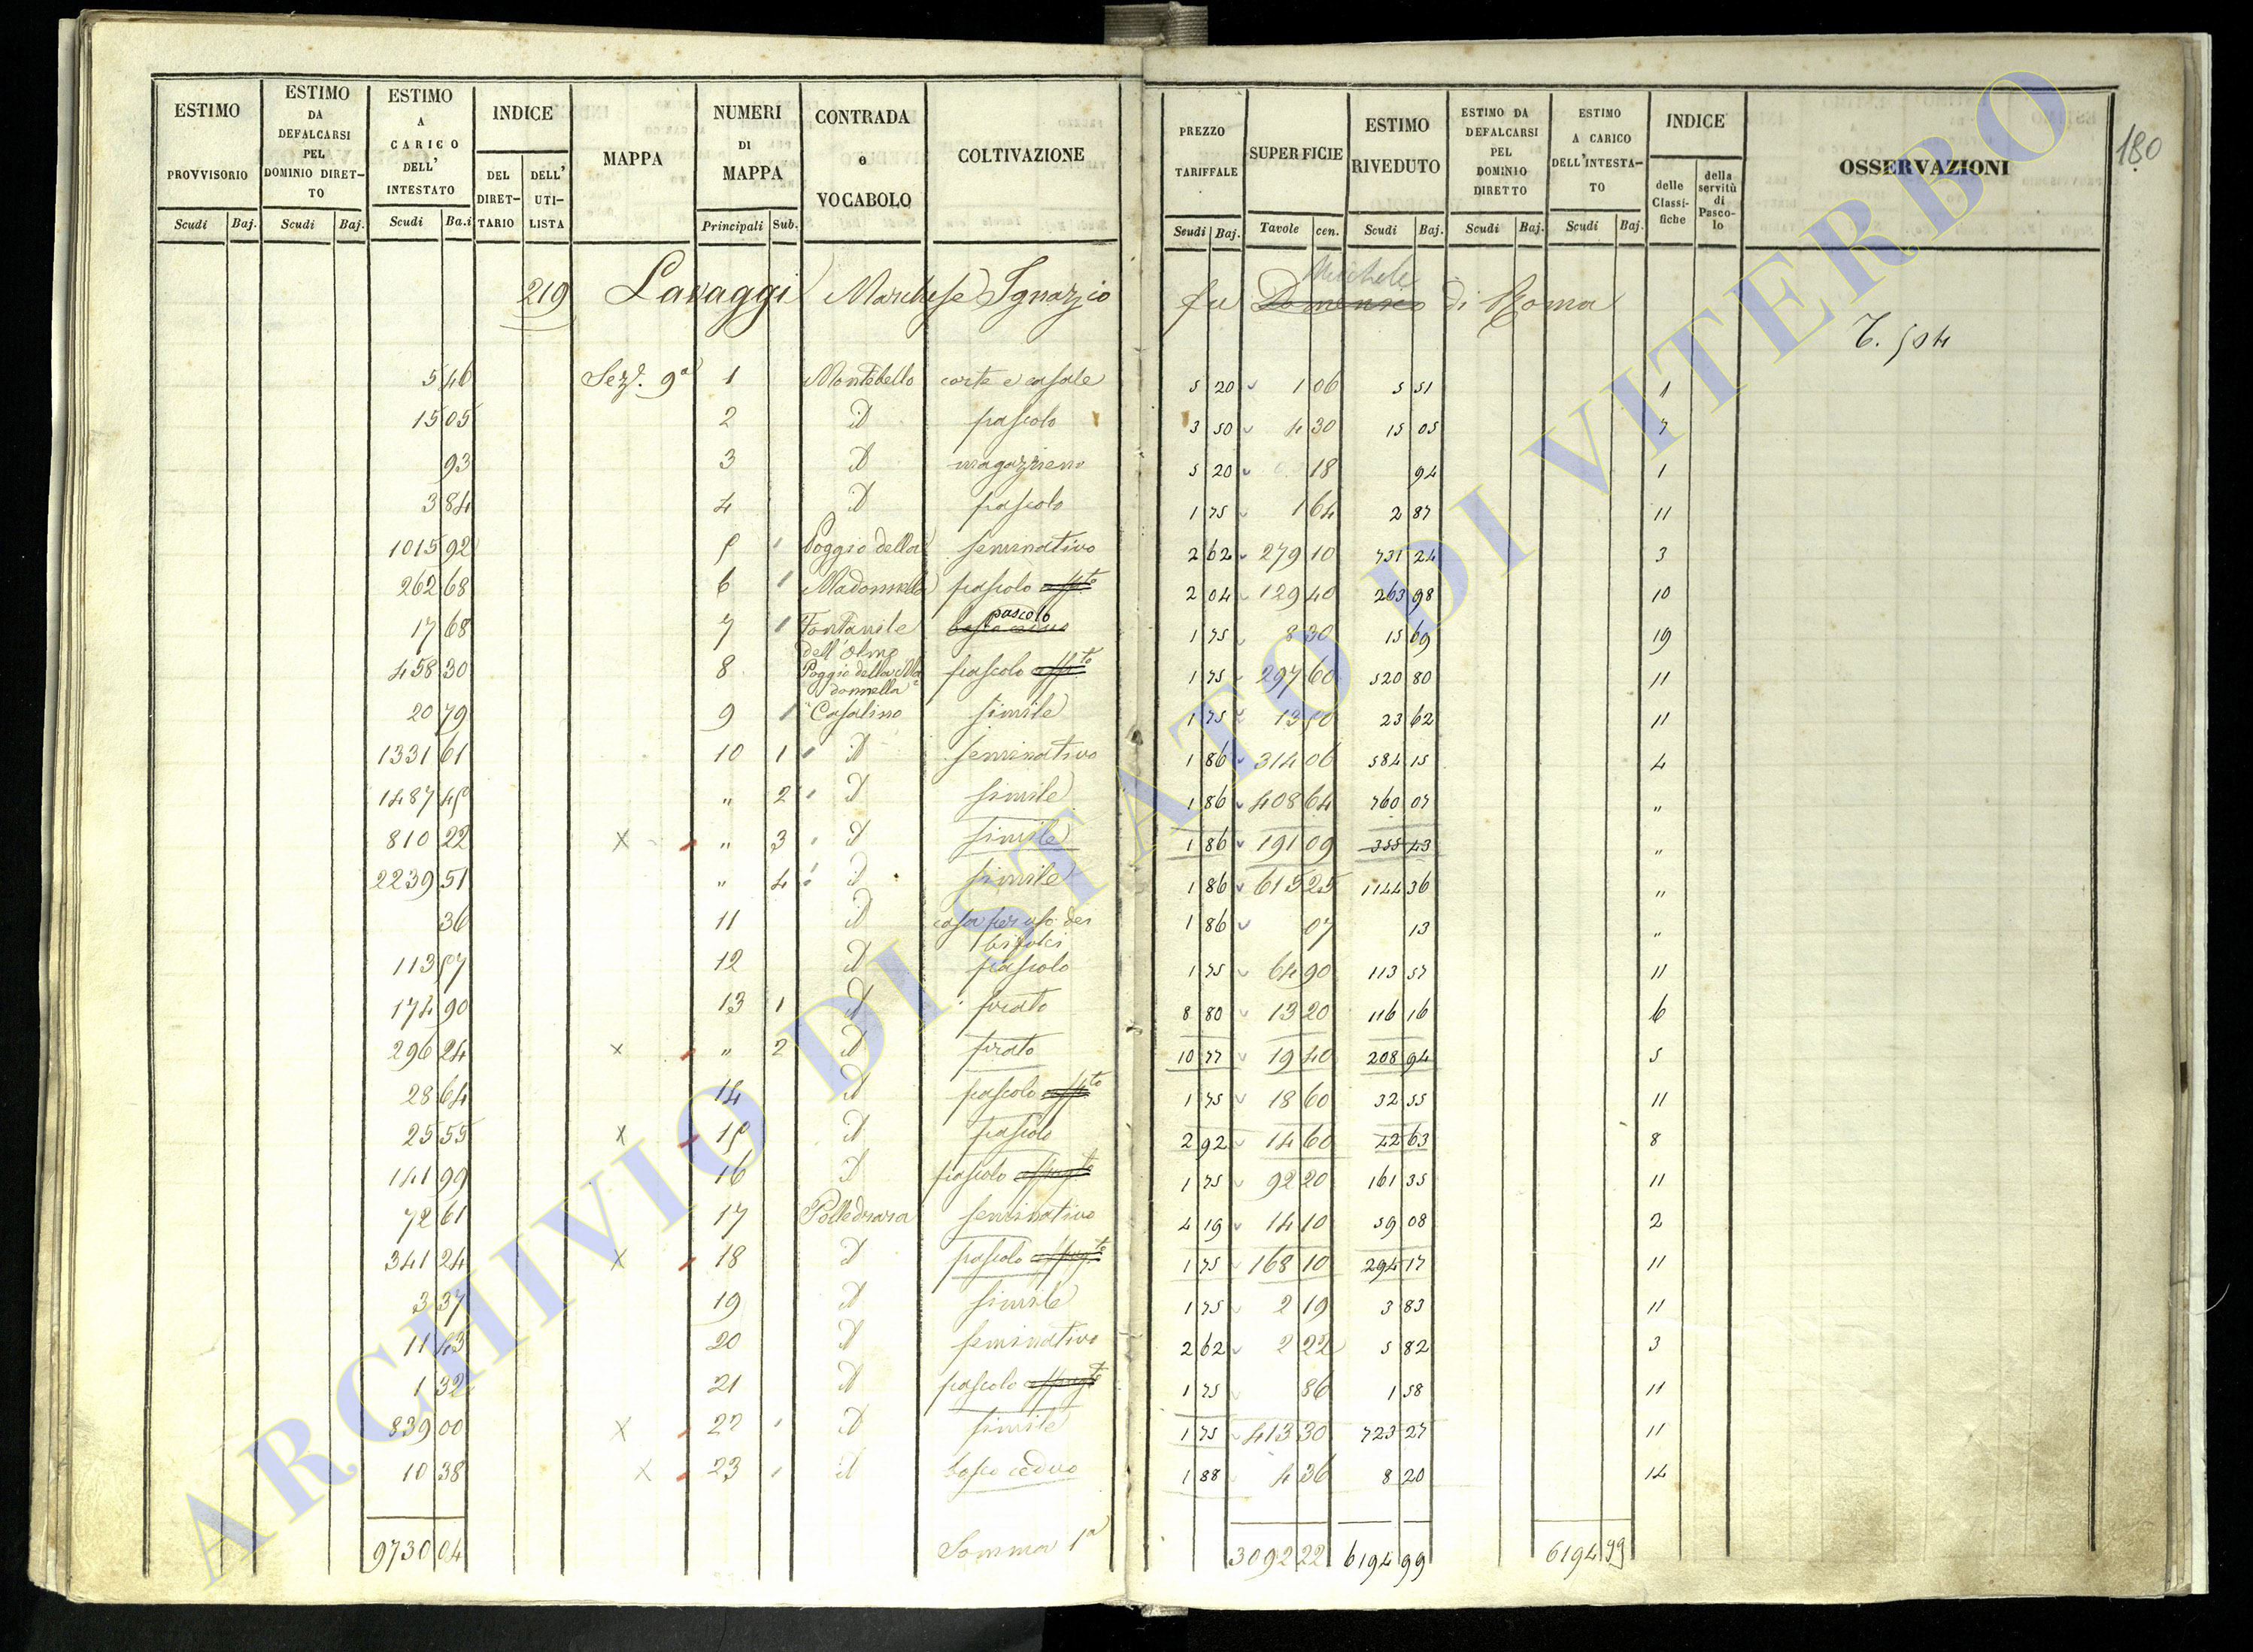 180
ESTIMO PROVVISORIO Scudi Baj. | ESTIMO DA DEFALCARSI PEL DOMINIO DIRET-TO Scudi Baj. | ESTIMO A CARICO DELL' INTESTATO Scudi Ba.i | INDICE DEL DIRET-TARIO DELL' UTI-LISTA | MAPPA | NUMERI DI MAPPA Principali Sub. | CONTRADA o VOCABOLO | COLTIVAZIONE | PREZZO TARIFFALE Scudi Baj. | SUPERFICIE Tavole cen. | ESTIMO RIVEDUTO Scudi Baj. | ESTIMO DA DEFALCARSI PEL DOMINIO DIRETTO Scudi Baj. | ESTIMO A CARICO DELL'INTESTA-TO Scudi Baj. | INDICE delle Classi-fiche della servitù di Pasco-lo | OSSERVAZIONI
219 Lavaggi Marchese Ignazio fu Domenico Michele di Roma
5 46 Sez.e 9a 1 Montebello corte e casale 5 20 1 06 5 51 1
15 05 2 id pascolo 3 50 4 30 15 05 7
93 3 id magazzieno 5 20 18 94 1
3 84 4 id pascolo 1 75 1 64 2 87 11
1015 92 5 Poggio della seminativo 2 62 279 10 731 24 3
262 68 6 Madonnella pascolo 2 04 129 40 263 98 10
17 68 7 Fontanile dell'Olmo bosco ceduo pascolo 1 75 8 30 15 69 19
458 30 8 Poggio della Madonnella pascolo 1 75 297 60 520 80 11
20 79 9 Casalino simile 1 75 13 50 23 62 11
1331 61 10 1 id seminativo 1 86 314 06 584 15 4
1487 45 " 2 id simile 1 86 408 64 760 07 "
810 22 X " 3 id simile 1 86 191 09 355 43 "
2239 51 " 4 id simile 1 86 615 25 1144 36 "
36 11 id casa per uso dei bifolci 1 86 07 13 "
113 57 12 id pascolo 1 75 64 90 113 57 11
174 90 13 1 id prato 8 80 13 20 116 16 6
296 24 X " 2 id prato 10 77 19 40 208 94 5
28 64 14 id pascolo 1 75 18 60 32 55 11
25 55 X 15 id pascolo 2 92 14 60 42 63 8
141 99 16 id pascolo 1 75 92 20 161 35 11
72 61 17 Polledrara seminativo 4 19 14 10 59 08 2
341 24 X 18 id pascolo 1 75 168 10 294 17 11
3 37 19 id simile 1 75 2 19 3 83 11
11 43 20 id seminativo 2 62 2 22 5 82 3
1 32 21 id pascolo 1 75 86 1 58 11
839 00 X 22 id simile 1 75 413 30 723 27 11
10 38 X 23 id bosco ceduo 1 88 4 36 8 20 14
9730 04 Somma 1a 3092 22 6194 99 6194 99
ARCHIVIO DI STATO DI VITERBO